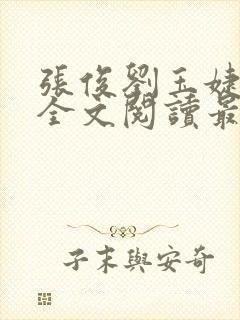 張俊劉玉婕
全文閱讀最
子末與安奇